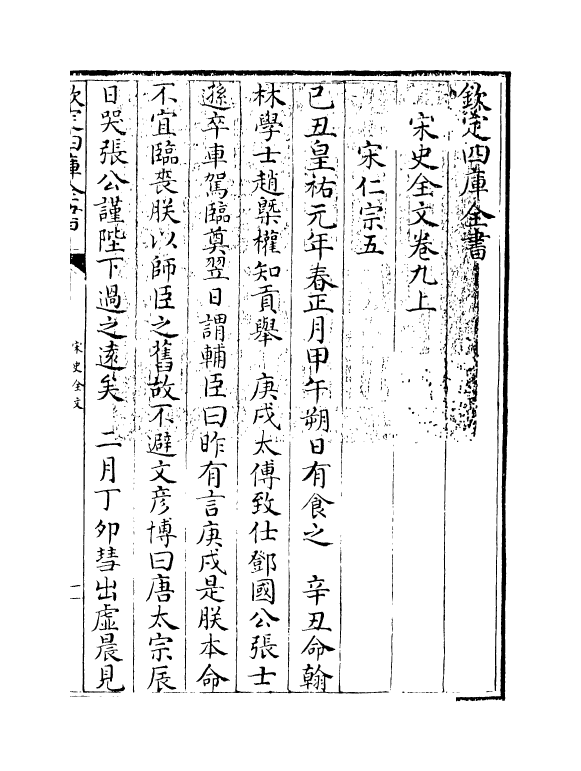 欽定四庫全書
宋史全文卷九上
宋仁宗五
己丑皇祐元年春正月甲午朔日有食之 辛丑命翰
林學士趙槩權知貢舉 庚戌太傅致仕鄧國公張士
遜卒車駕臨奠翌日謂輔臣曰昨有言庚戌是朕本命
不宜臨喪朕以師臣之舊故不避文彦博曰唐太宗辰
日哭張公謹陛下過之逺矣 二月丁夘彗出虚晨見
欽定四庫全書
宋史全文
一